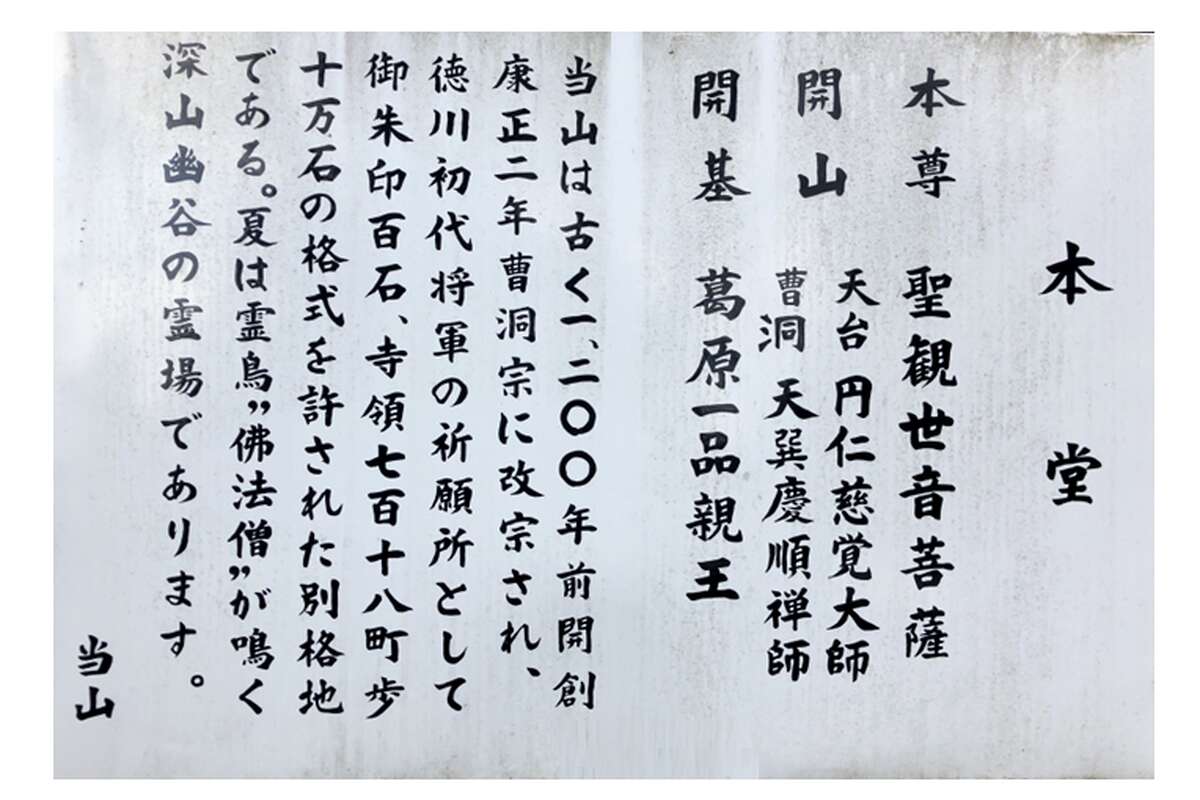 本堂
本尊 聖観世音菩薩
開山 天台 円仁慈覚大師
曹洞 天巽慶順禅師
開基 葛原一品親王
当山は古く一、二〇〇年前開創
康正二年曹洞宗に改宗され、
徳川初代将軍の祈願所として
御朱印百石、寺領七百十八町歩
十万石の格式を許された別格地
である。夏は霊鳥”佛法僧”が鳴く
深山幽谷の霊場であります。
当山